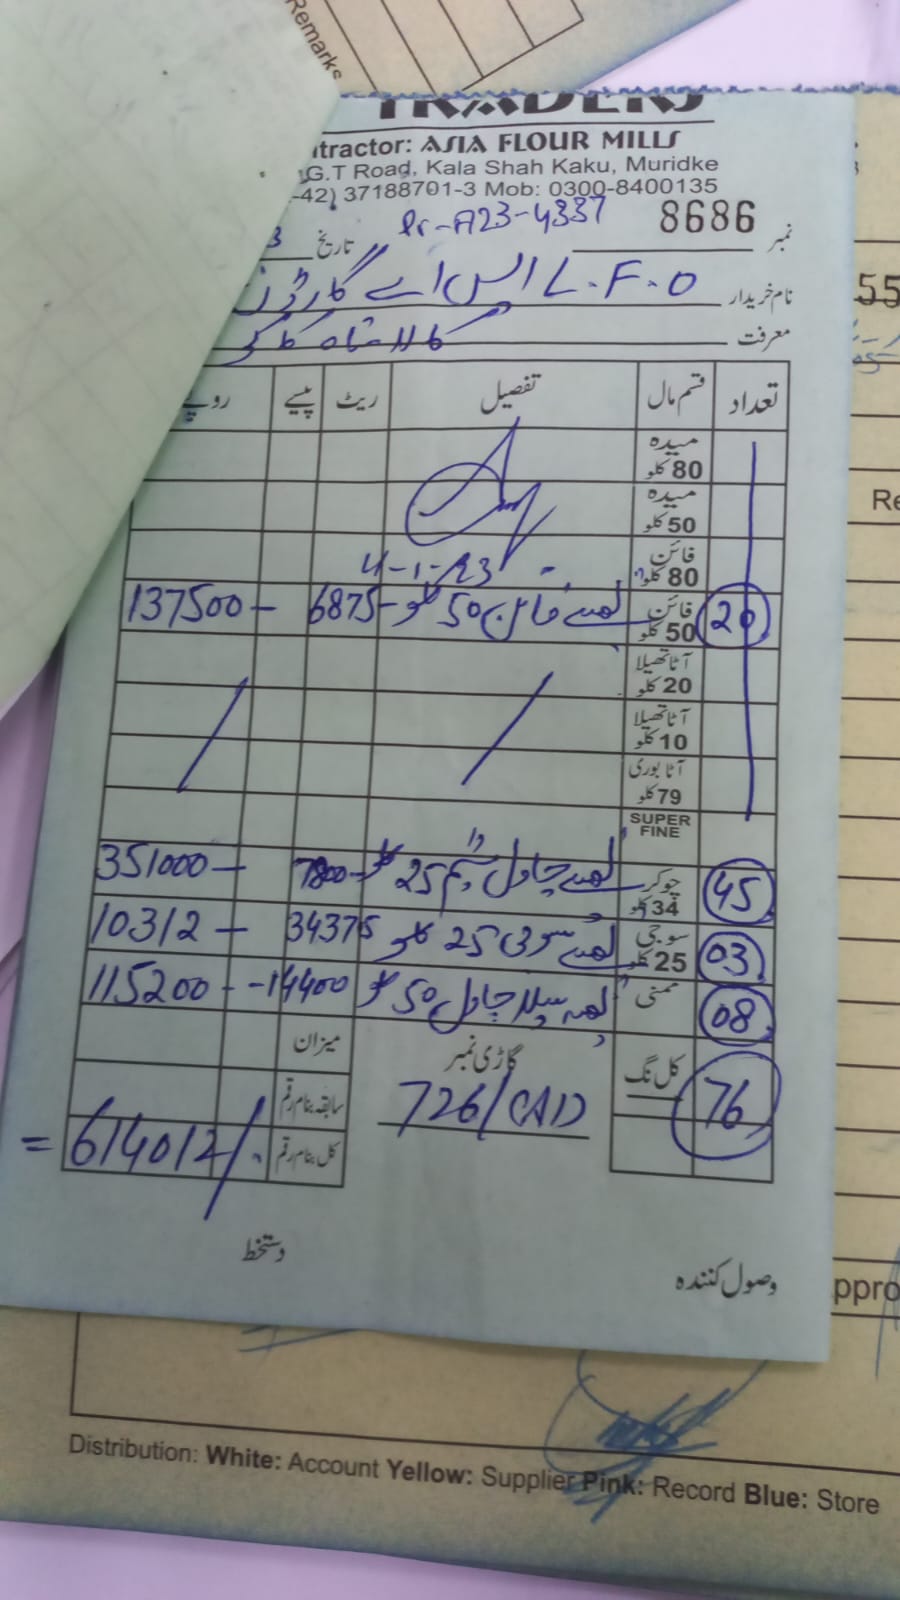 Remarks
TRADERS
ntractor: ASIA FLOUR MILLS
G.T Road, Kala Shah Kaku, Muridke
-42) 37188701-3 Mob: 0300-8400135
Pr-A23-4337
نمبر 8686
تاریخ 3
نام خریدار L.F.O ایس اے گارڈن
معرفت کالا شاہ کاکو
تعداد قسم مال تفصیل ریٹ پیسے روپے
میدہ 80 کلو
میدہ 50 کلو
فائن 80 کلو
4-1-23
20 فائن 50 کلو فائن 50 کلو 6875 137500 -
آٹا تھیلا 20 کلو
آٹا تھیلا 10 کلو
آٹا بوری 79 کلو
SUPER FINE
45 چوکر 34 کلو چاول 25 کلو 7800 351000 -
03 سوجی 25 کلو سوجی 25 کلو 34375 10312 -
08 ممنی سیلا چاول 50 کلو 14400 115200 -
76 کل نگ گاڑی نمبر میزان
726/CAD سابقہ بنام رقم
کل بنام رقم = 614012/
دستخط
وصول کنندہ
55
Re
ppro
Distribution: White: Account Yellow: Supplier Pink: Record Blue: Store